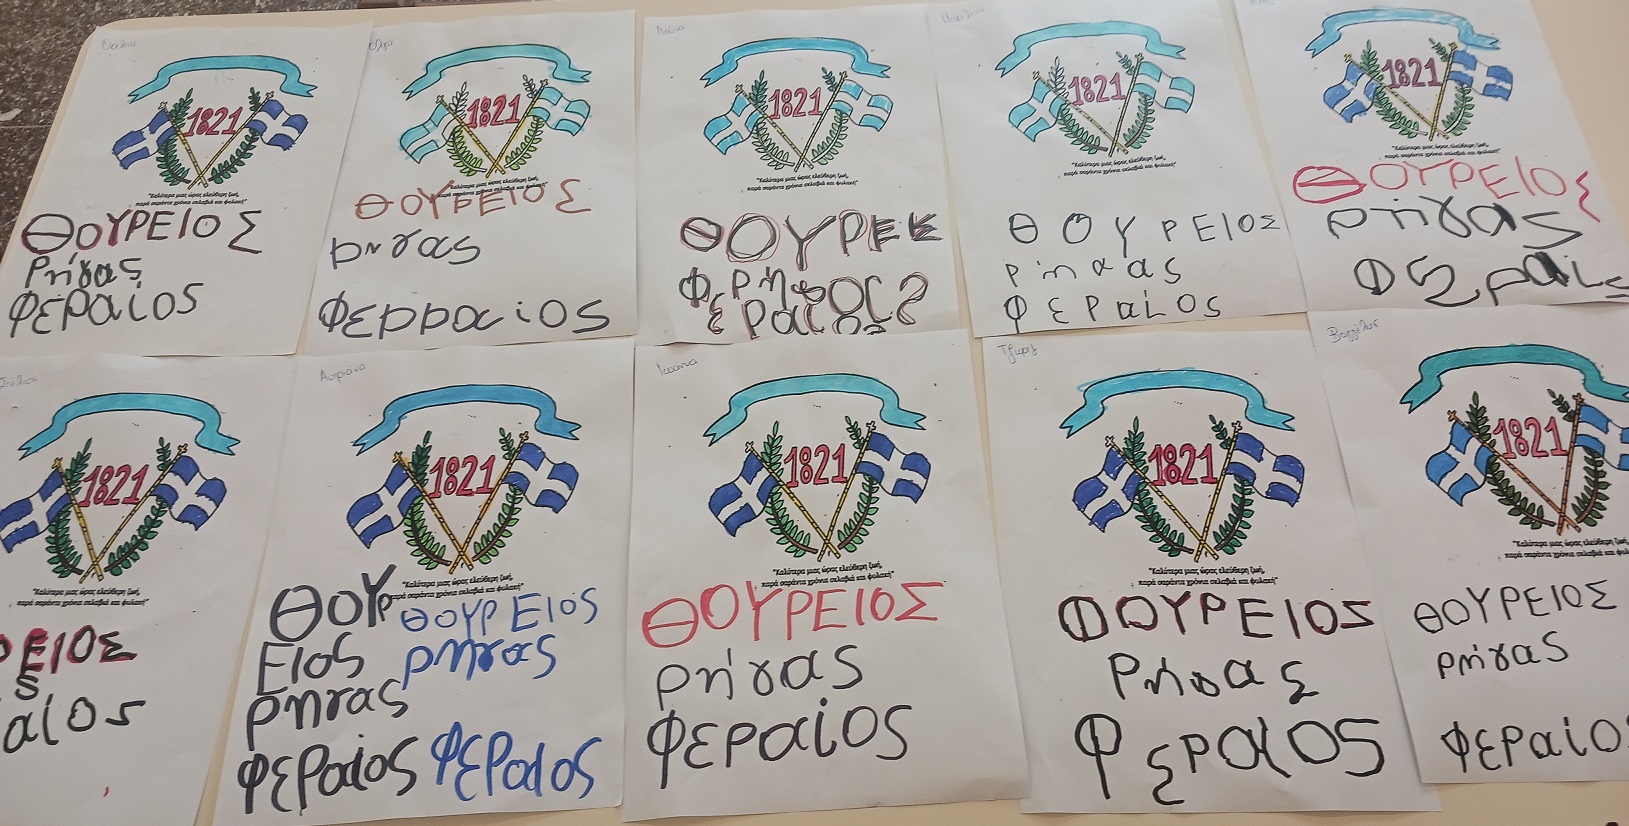 Θάλια
1821
"Καλύτερα μιας ώρας ελεύθερη ζωή,
παρά σαράντα χρόνια σκλαβιά και φυλακή"
ΘΟΥΡΕΙΟΣ
Ρήγας
ΦΕραίος
Όλγα
1821
"Καλύτερα μιας ώρας ελεύθερη ζωή,
παρά σαράντα χρόνια σκλαβιά και φυλακή"
ΘΟΥΡΕΙΟΣ
ρηγας
Φερραιος
1821
"Καλύτερα μιας ώρας ελεύθερη ζωή,
παρά σαράντα χρόνια σκλαβιά και φυλακή"
ΘΟΥΡΕΚ
Μαριλένα
1821
"Καλύτερα μιας ώρας ελεύθερη ζωή,
παρά σαράντα χρόνια σκλαβιά και φυλακή"
ΘΟΥΡΕΙΟΣ
Ρηαας
ΦΕραίος
1821
"Καλύτερα μιας ώρας ελεύθερη ζωή,
παρά σαράντα χρόνια σκλαβιά και φυλακή"
ΘΟΥΡΕΙΟΣ
ρήγας
1821
"Καλύτερα μιας ώρας ελεύθερη ζωή,
παρά σαράντα χρόνια σκλαβιά και φυλακή"
ΡΕΙΟΣ
ς
αίος
Αντριάνα
1821
"Καλύτερα μιας ώρας ελεύθερη ζωή,
παρά σαράντα χρόνια σκλαβιά και φυλακή"
ΘΟΥΡ
ΕΙΟς
ρηγας
φεραίος
ΘΟΥΡΕΙΟΣ
ρηγας
φεραιος
Ιωάννα
1821
"Καλύτερα μιας ώρας ελεύθερη ζωή,
παρά σαράντα χρόνια σκλαβιά και φυλακή"
ΘΟΥΡΕΙΟΣ
ρήγας
Φεραίος
Τζωρτζ
1821
"Καλύτερα μιας ώρας ελεύθερη ζωή,
παρά σαράντα χρόνια σκλαβιά και φυλακή"
ΦΟΥΡΕΙΟΣ
Ρήγας
Φεραίος
Βαγγέλης
1821
"Καλύτερα μιας ώρας ελεύθερη ζωή,
παρά σαράντα χρόνια σκλαβιά και φυλ
ΘΟΥΡΕΙΟΣ
ρήγας
Φεραίο